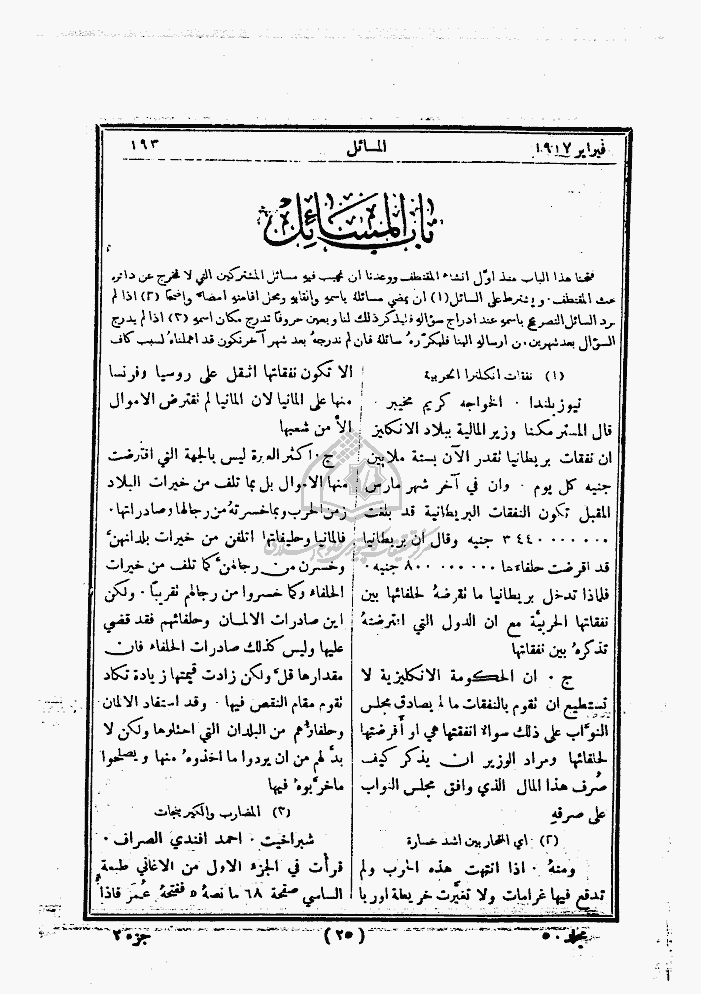 فبراير ١٩١٧
المسائل
١٩٣
باب المسائل
فتحنا هذا الباب منذ اول انشاء المقتطف ووعدنا ان نجيب فيه مسائل المشتركين التي لا تخرج عن دائرة
بحث المقتطف . ويشترط على السائل (١) ان يمضي مسائله باسمه والقابه ومحل اقامته امضاء واضحا (٢) اذا لم
يرد السائل التصريح باسمه عند ادراج سؤاله فليذكر ذلك لنا ويعين حروفا تدرج مكان اسمه (٣) اذا لم يدرج
السؤال بعد شهرين من ارساله الينا فليكرره سائله فان لم ندرجه بعد شهر آخر نكون قد اهملناه لسبب كاف
(١) نفقات انكلترا الحربية
نيوزيلندا . الخواجه كريم مخيبر .
قال المستر مكنا وزير المالية ببلاد الانكليز
ان نفقات بريطانيا تقدر الآن بستة ملايين
جنيه كل يوم . وان في آخر شهر مارس
المقبل تكون النفقات البريطانية قد بلغت
٣٤٤٠٠٠٠٠٠٠ جنيه وقال ان بريطانيا
قد اقرضت حلفاءها ٨٠٠٠٠٠٠٠٠ جنيه .
فلماذا تدخل بريطانيا ما تقرضه لحلفائها بين
نفقاتها الحربيَّة مع ان الدول التي اقترضتهُ
تذكرهُ بين نفقاتها
ج . ان الحكومة الانكليزية لا
تستطيع ان تقوم بالنفقات ما لم يصادق مجلس
النوَّاب على ذلك سوالا انفقتها هي او أقرضتها
لحلفائها ومراد الوزير ان يذكر كيف
صُرف هذا المال الذي وافق مجلس النواب
على صرفهِ
(٢) اي المتحاربين اشد خسارة
ومنهُ . اذا انتهت هذه الحرب ولم
تدفع فيها غرامات ولا تغيَّرت خريطة اوربا
الا تكون نفقاتها اثقل على روسيا وفرنسا
منها على المانيا لان المانيا لم تقترض الاموال
الاَّ من شعبها
ج . اكثر العبرة ليس بالجهة التي اقترضت
منها الاموال بل بما تلف من خيرات البلاد
زمن الحرب وبما خسرتهُ من رجالها وصادراتها .
فالمانيا وحليفاتها اتلفن من خيرات بلدانهنَّ
وخسرن من رجالهنَّ كما تلف من خيرات
الحلفاء وكما خسروا من رجالهم نقريبًا . ولكن
اين صادرات الالمان وحلفائهم فقد قضي
عليها وليس كذلك صادرات الحلفاء فان
مقدارها قلَّ ولكن زادت قيمتها زيادة تكاد
تقوم مقام النقص فيها . وقد استفاد الالمان
وحلفاؤهم من البلدان التي احتلوها ولكن لا
بدَّ لهم من ان يردوا ما اخذوهُ منها ويصلحوا
ما خرَّبوهُ فيها
(٣) المضارب والكير بنجات
شبراخيت . احمد افندي الصراف .
قرأت في الجزء الاول من الاغاني طبعة
الساسي صفحة ٦٨ ما نصهُ « ففتحهُ عُمَر فاذا
مجلد ٥٠
(٢٥)
جزء ٢